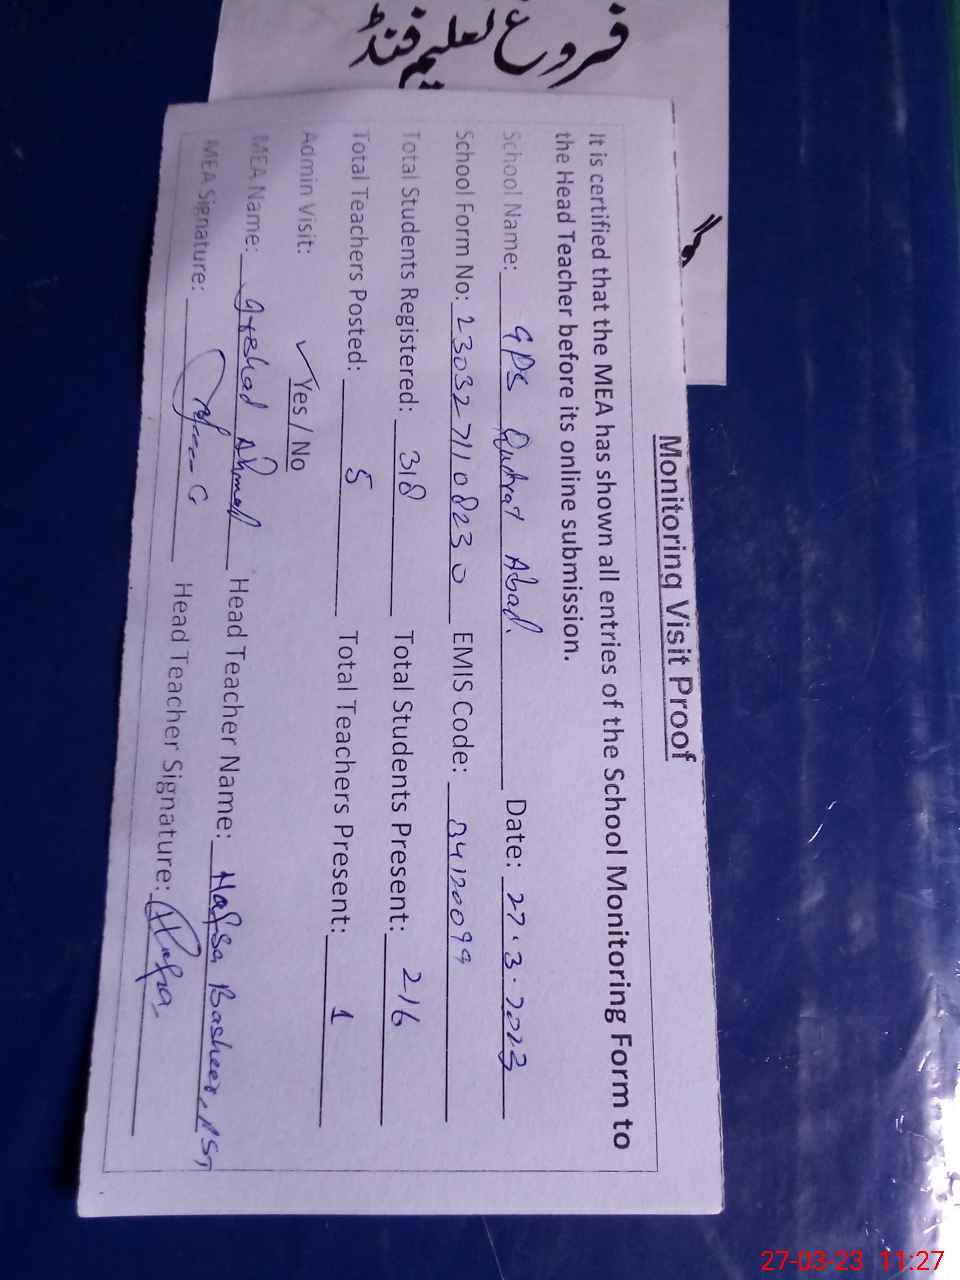 فروغ تعلیم فنڈ
Monitoring Visit Proof
It is certified that the MEA has shown all entries of the School Monitoring Form to
the Head Teacher before its online submission.
School Name: GPS Qudrat Abad. Date: 27.3.2023
School Form No: 230327110823 0 EMIS Code: 34120099
Total Students Registered: 318 Total Students Present: 216
Total Teachers Posted: 5 Total Teachers Present: 1
Admin Visit: ✓ Yes / No
MEA Name: Arshad Ahmad Head Teacher Name: Hafsa Basheer, PST
MEA Signature: Head Teacher Signature: Hafsa
27-03-23 11:27